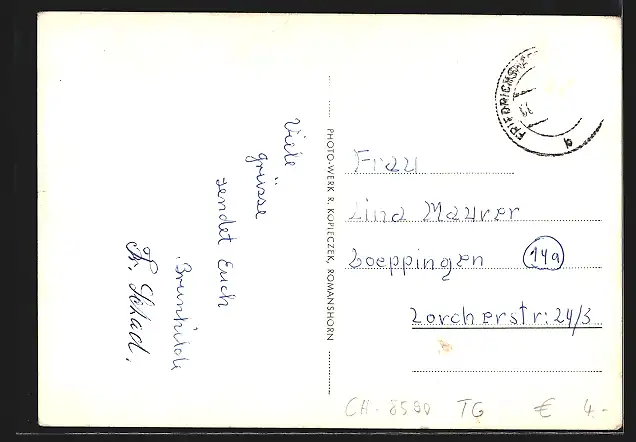 Viele
grüsse
sendet Euch
Brunhilde
Fr. Schad.
PHOTO-WERK R. KOPIECZEK, ROMANSHORN
Frau
Lina Maurer
Goeppingen 14a
Lorcherstr: 24/3
CH-8590 TG € 4.-